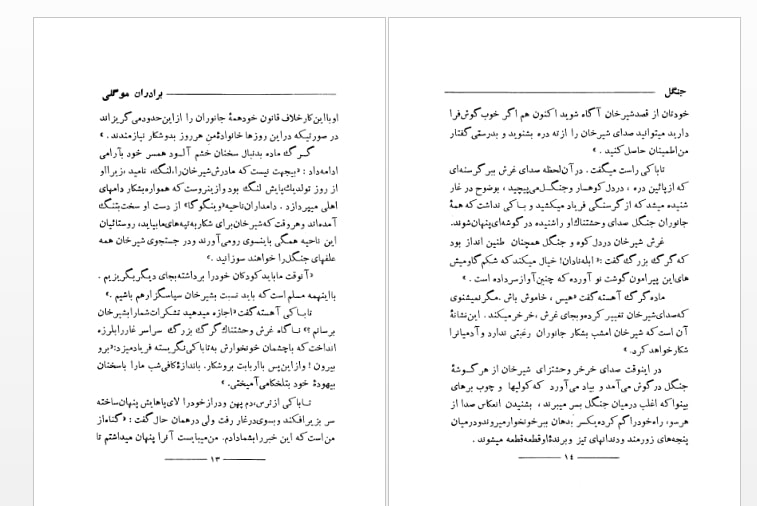 برادران موگلی
او با این کار خلاف قانون خود همهٔ جانوران را از این حدود می گریزاند
در صورتیکه در این روزها خانوادهٔ من هر روز بدو شکار نیازمندند . »
گرگ ماده بدنبال سخنان خشم آلود همسر خود بآرامی
ادامه داد : «بیجهت نیست که مادرش شیرخان را، لنگ، نامید ، زیرا او
از روز تولد یك پایش لنگ بود و از ینروست که همواره بشکار دامهای
اهلی میپردازد . دامداران ناحیه «وینگوگا» از دست او سخت بتنگ
آمده اند و هر وقت که شیرخان برای شکار به تپه های ما بیاید، روستائیان
این ناحیه همگی باینسوی رومی آورند و در جستجوی شیرخان همه
علفهای جنگل را خواهند سوزانید . »
«آ نوقت ما باید کودکان خودرا برداشته بجای دیگر بگریزیم .
با اینهمه مسلم است که باید نسبت بشیرخان سپاسگزار هم باشیم . »
تاباکی آهسته گفت «اجازه میدهید تشکرات شما را بشیرخان
برسانم ؟» ناگاه غرش وحشتناك گرگ بزرگ سراسر غار را بلرزه
انداخت که با چشمان خونخوارش به تاباکی نگریسته فریاد میزد: «برو
بیرون ! و از این پس با اربابت برو شکار. باندازهٔ کافی شب مارا باسخنان
بیهودهٔ خود بتلخکامی آمیختی. »
تاباکی از ترس، دم پهن و دراز خودرا لای پاهایش پنهان ساخته
سر بزیر افکند و بسوی در غار رفت ولی در همان حال گفت : «گناه از
من است که این خبر را بشما دادم. من میبایست آنرا پنهان میداشتم تا
۱۳
جنگل
خودتان از قصد شیرخان آگاه شوید اکنون هم اگر خوب گوش فرا
دارید میتوانید صدای شیرخان را از ته دره بشنوید و بدرستی گفتار
من اطمینان حاصل کنید . »
تاباکی راست میگفت . در آن لحظه صدای غرش ببر گرسنه ای
که از پائین دره ، در دل کوهسار و جنگل می پیچید ، بوضوح در غار
شنیده میشد که از گرسنگی فریاد میکشید و باکی نداشت که همهٔ
جانوران جنگل صدای وحشتناك او را شنیده در گوشه ای پنهان شوند.
غرش شیرخان در دل کوه و جنگل همچنان طنین انداز بود
که گرگ بزرگ گفت : «ابله نادان! خیال میکند که شکم گاومیش
های این پیرامون گوشت نو آورده که چنین آواز سر داده است . »
ماده گرگ آهسته گفت «هیس ، خاموش باش . مگر نمیشنوی
که صدای شیرخان تغییر کرده و بجای غرش ، خرخر میکند . این نشانهٔ
آن است که شیرخان امشب بشکار جانوران رغبتی ندارد و آدمیانرا
شکار خواهد کرد. »
در اینوقت صدای خرخر وحشتزای شیرخان از هر گوشهٔ
جنگل در گوش می آمد و بیاد می آورد که کولیها و چوب برهای
بینوا که اغلب درمیان جنگل بسر میبرند ، بشنیدن انعکاس صدا از
هر سو، راه خودرا گم کرده یکسر بدهان ببر خونخوار میروند و درمیان
پنجه های زورمند و دندانهای تیز و برندهٔ او قطعه قطعه میشوند .
۱٤